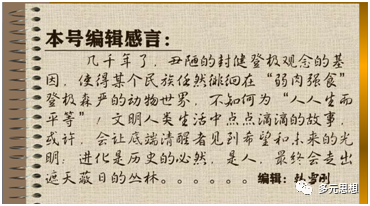 本号编辑感言：
几千年了，丑陋的封健登极观念的基
因，使得某个民族任然徘徊在“弱肉强食”
登极森严的动物世界，不知何为“人人生而
平等”；文明人类生活中点点滴滴的故事，
或许，会让底端清醒者见到希望和未来的光
明；进化是历史的必然，是人，最终会走出
遮天蔽日的丛林。。。。。。编辑：
多元思想